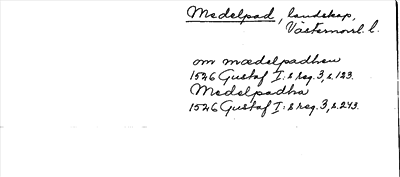 Medelpad, landskap,
Västernorrl. l.
om mædelpadhen
1526 Gustaf I:s reg. 3, s. 123.
Medelpadha
1526 Gustaf I:s reg. 3, s. 293.